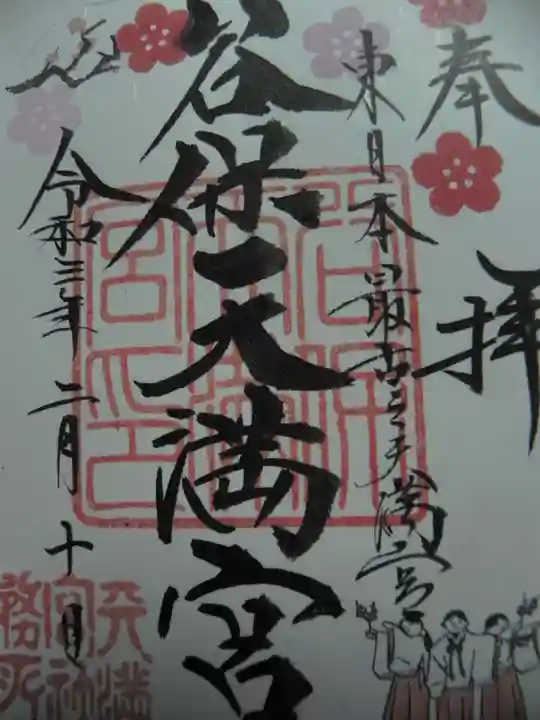 奉拝
東日本最古之天満宮
谷保天満宮
令和三年二月十日
谷保天満宮印
天満宮社務所